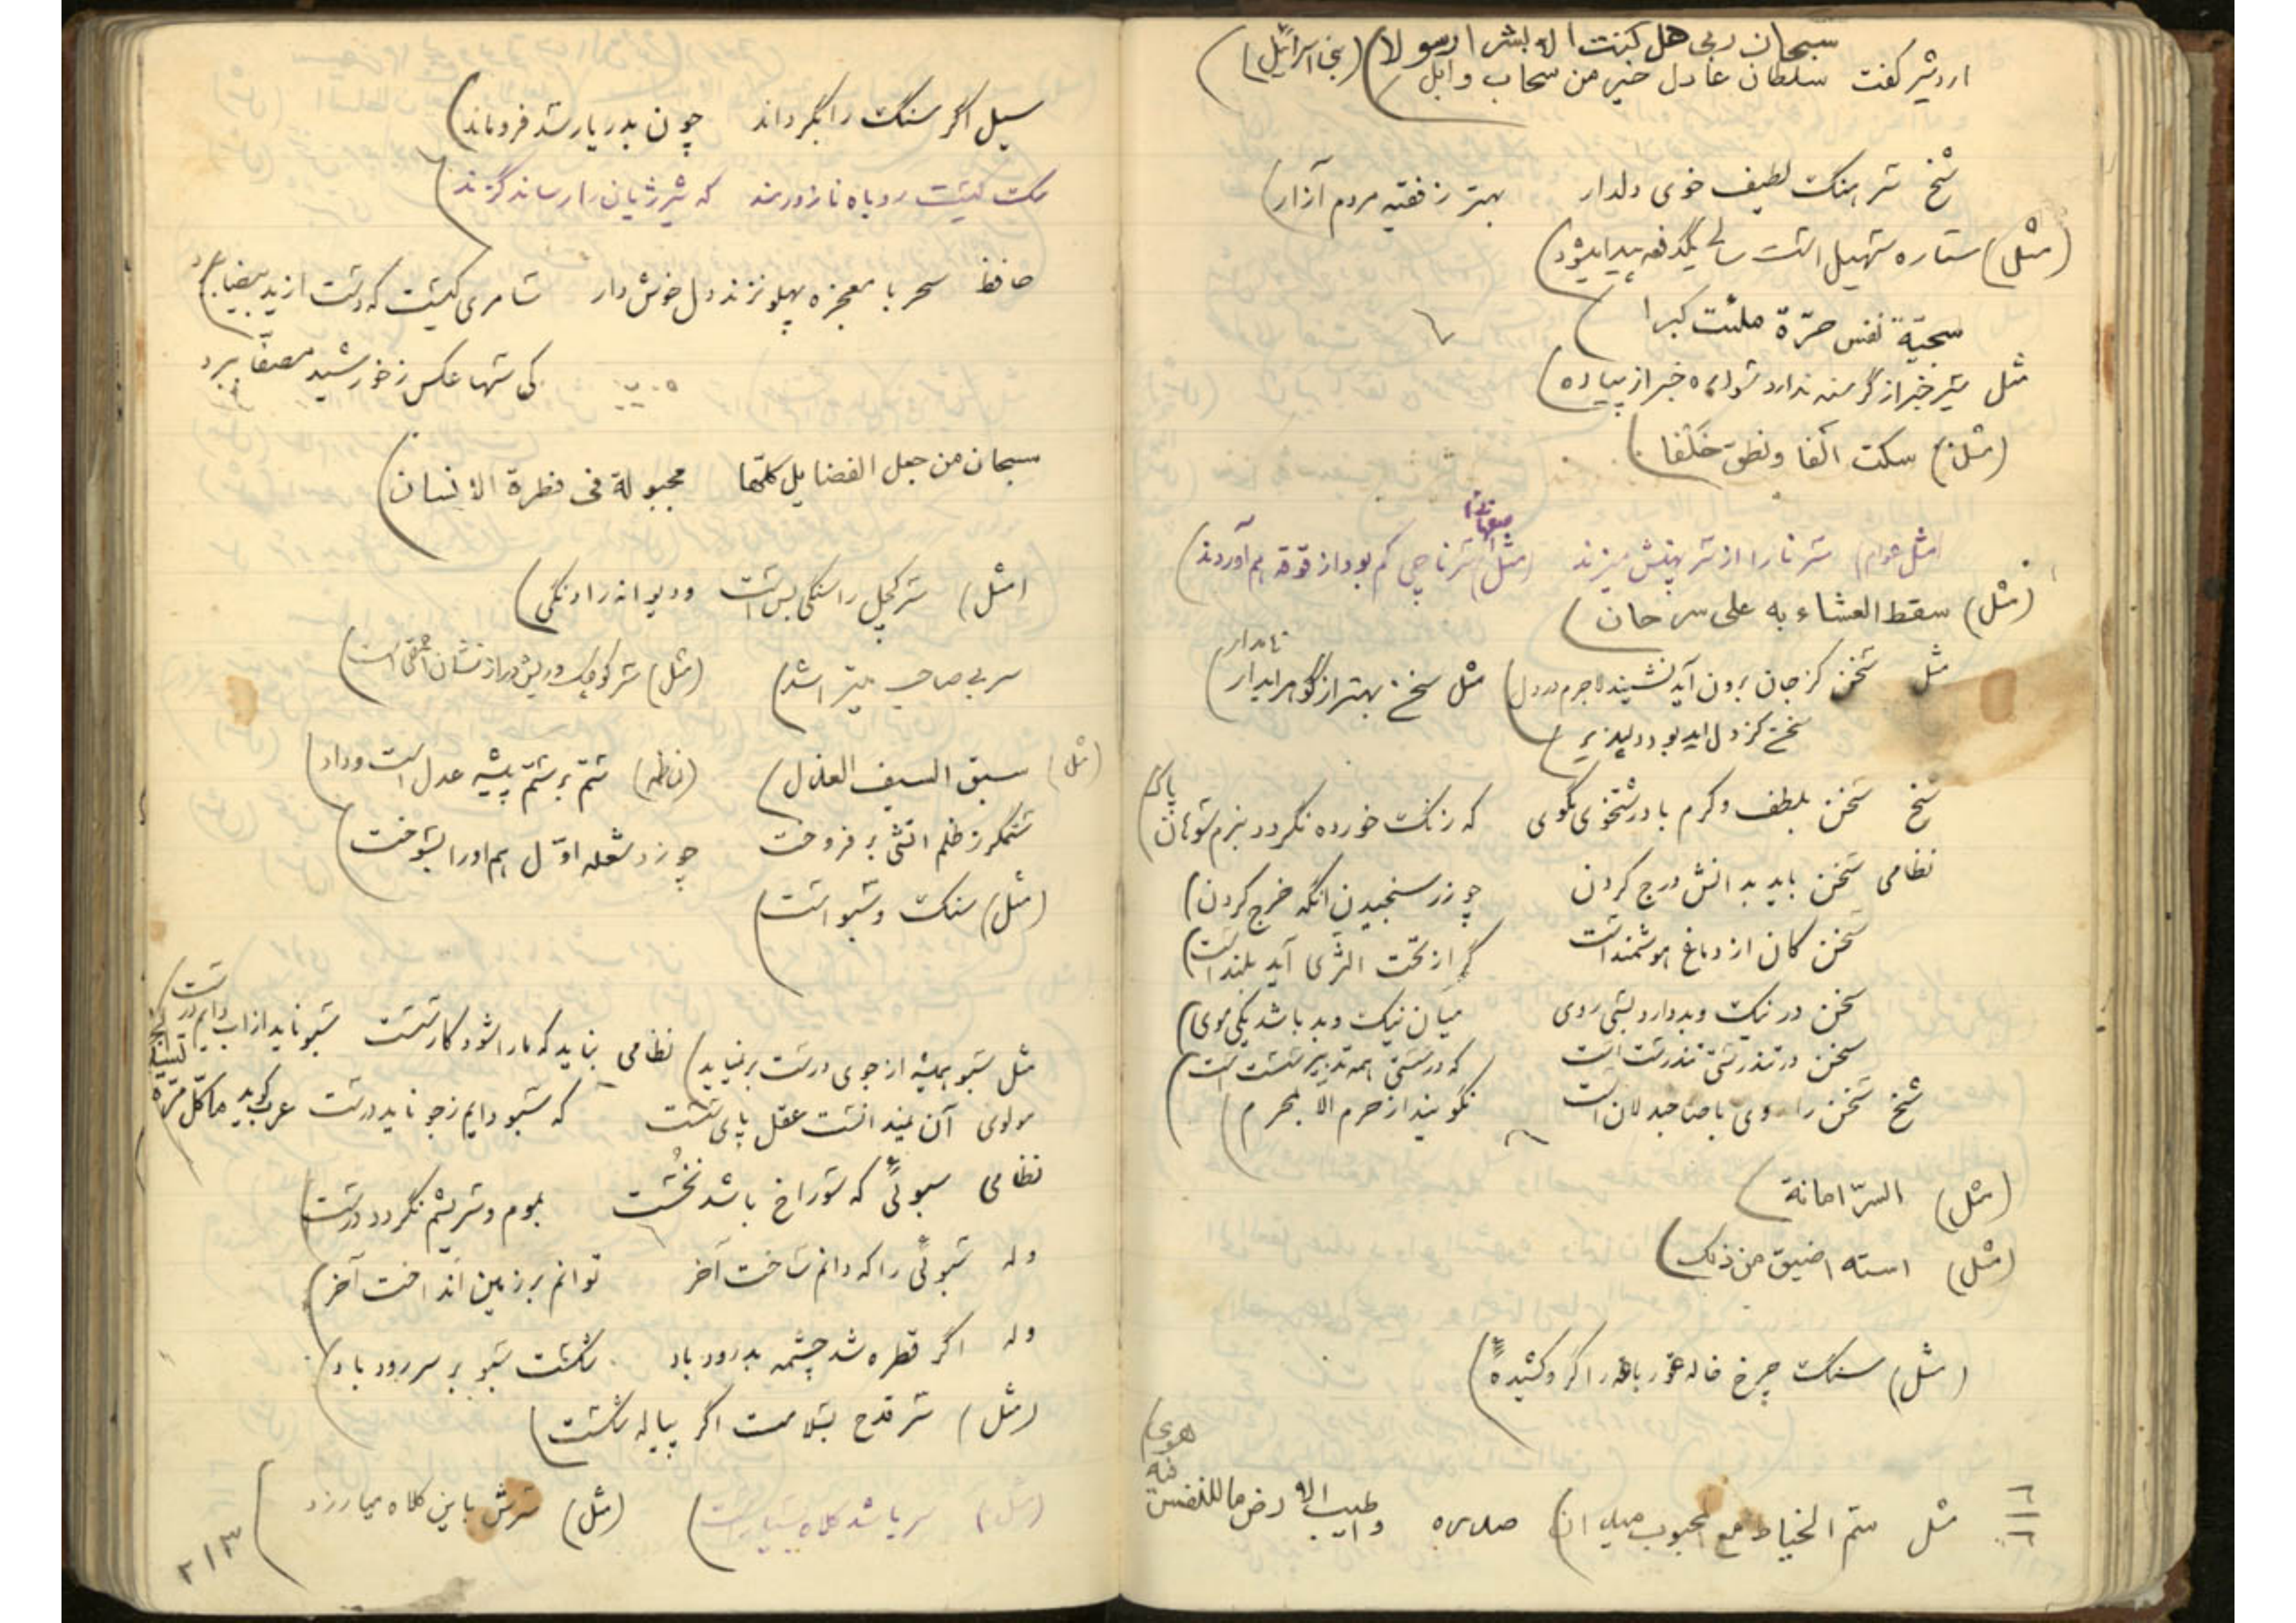 سبحان ربی هل کنت الا بشرا رسولا) (بنی اسرائیل)
اردشیر گفت سلطان عادل خیر من سحاب وابل)
شخ سرهنگ لطیف خوی دلدار بهتر ز فقیه مردم آزار)
(مثل) ستاره سهیل است سالی یکدفعه پیدا میشود)
سجیّة نفس حرّة ملئت کبرا
مثل سیر خبر از گرسنه ندارد سواره خبر از پیاده)
(مثل) سکت الفا ونطق خَلْفا)
(مثل عوام) سرنا را از سر پهنش میزند (مثل) سرناچی کم بود از قوقه هم آوردند)
(مثل) سقط العشاء به علی سرحان)
مثل سخن کز جان برون آید نشیند لاجرم در دل) مثل سخن بهتر از گوهر آبدار)
نامدار
سخن کز دل اید بود دلپذیر)
شخ سخن بلطف و کرم با درشتخوی مگوی که زنگ خورده نگردد بنرم سوهان پاک)
نظامی سخن باید بدانش درج کردن چو زر سنجیدن انگه خرج کردن)
سخن کان از دماغ هوشمند است گر از تحت الثری آید بلند است)
سخن در نیک و بد دارد بسی روی میان نیک و بد باشد یکی موی)
سخن در تندرستی تندرست است که در سستی همه تدبیر سست است)
شخ سخن را روی با صاحبدلان است نگویند از حرم الا بمحرم)
(مثل) السرّ امانة)
(مثل) استه اضیق من ذلک)
(مثل) سنگ چرخ خاله
مثل سمّ الخیاط مع المحبوب میدان) وطیب الارض ما للنفس فیه هوی)
سیل اگر سنگ را بگرداند چون بدریا رسد فرو ماند)
سک کیست روباه نازورمند که شیر ژیان را رساند گزند)
حافظ سحر با معجزه پهلو نزند دل خوش دار سامری کیست که دست از ید بیضا ببرد)
کی سها عکس ز خورشید مصفّا ببرد
سبحان من جعل الفضایل کلّها مجبولة فی فطرة الانسان)
(مثل) سر کچل را سنگی بس است و دیوانه را دنگی)
سر بی صاحب میتراشد) (مثل) سر کوچک و ریش دراز نشان احمقی است)
(مثل) سبق السیف العذل) ستم بر ستم پیشه عدل است و داد)
ستمگر ز ظلم اتشی بر فروخت چو زد شعله اوّل هم او را بسوخت)
(مثل) سنگ و سبو است)
مثل سبو همیشه از جوی درست برنیاید) نظامی نباید که ما را شود کار سست سبو ناید از اب دایم درست
مولوی آن نمیدانست عقل پای سست که سبو دایم ز جو ناید درست عرب گوید ما کلّ مرّة
نظامی سبوئی که سوراخ باشد نخست بموم و سریشم نگردد درست)
وله سبوئی را که دانم ساخت آخر توانم بر زمین انداخت آخر)
وله اگر قطره شد چشمه بدرود باد شکست سبو بر سر رود باد)
(مثل) سر قدح بسلامت اگر پیاله شکست)
(مثل) سر باشد کلاه بسیار است) (مثل) سرش باین کلاه میارزد
۲۱۳